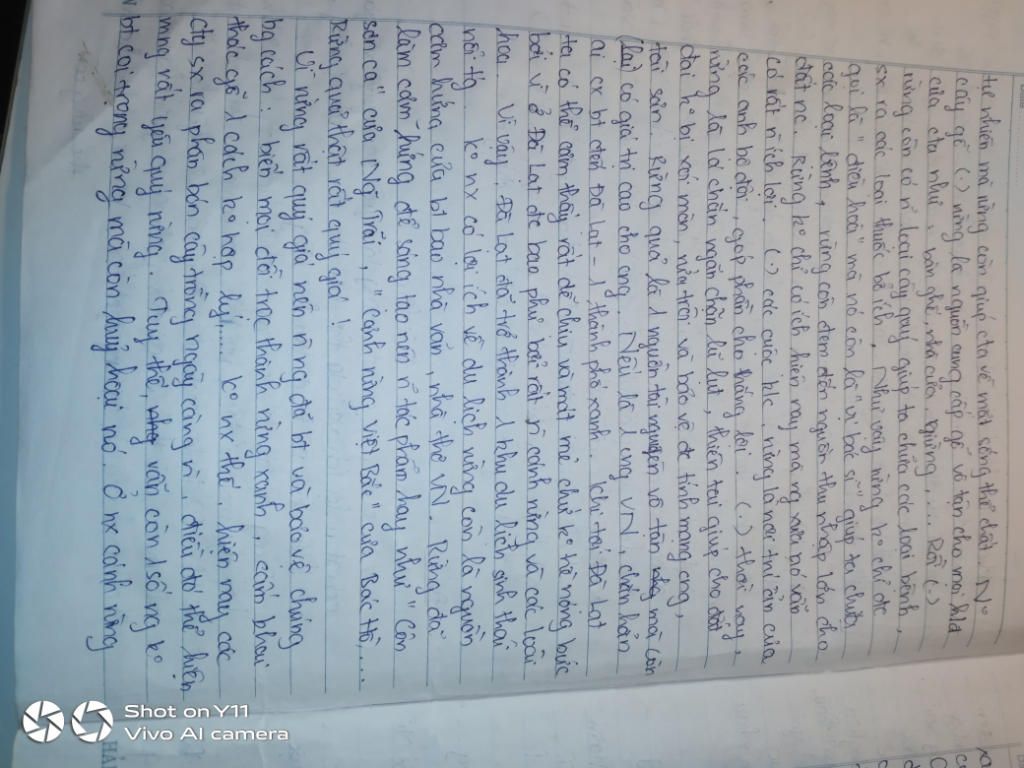 tự nhiên mà rừng còn giúp cta về mặt sống thể chất. N~
cây gỗ (.) rừng là nguồn cung cấp gỗ vô tận cho mọi hđ
của cta như : bàn ghế, nhà cửa, giường, ... Rồi (.)
rừng còn có n~ loại cây quý giúp ta chữa các loại bệnh,
sx ra các loại thuốc bổ ích. Như vậy rừng ko chỉ đc
gọi là "điều hoà" mà nó còn là "vị bác sĩ" giúp ta chữa
các loại bệnh, rừng còn đem đến nguồn thu nhập lớn cho
đất nc. Rừng ko chỉ có ích hiện nay mà ngày xưa nó vẫn
có rất n` ích lợi. (.) các cuộc k/c, rừng là nơi trú ẩn của
các anh bộ đội, góp phần cho thắng lợi. (.) thời nay,
rừng là lá chắn ngăn chặn lũ lụt, thiên tai giúp cho đất
đai ko bị xói mòn, rửa trôi và bảo vệ đc tính mạng cng,
tài sản. Rừng quả là 1 nguồn tài nguyên vô tận mà còn
(lại) có giá trị cao cho cng. Nếu là 1 ng VN, chắn hẳn
ai cx bt đến Đà Lạt - 1 thành phố xanh. Khi tới Đà Lạt
ta có thể cảm thấy rất dễ chịu và mát mẻ chứ ko hề nóng bức
bởi vì ở Đà Lạt đc bao phủ bởi rất n` cánh rừng và các loài
hoa. Vì vậy, Đà Lạt đã trở thành 1 khu du lịch sinh thái
nổi tg. Ko nx có lợi ích về du lịch rừng còn là nguồn
cảm hứng của bt bao nhà văn, nhà thơ VN. Rừng đã
làm cảm hứng để sáng tạo nên n~ tác phẩm hay như "Côn
sơn ca" của Ng~ Trãi, "cảnh rừng việt Bắc" của Bác Hồ,...
Rừng quả thật rất quý giá!
Vì rừng rất quý giá nên n` ng đã bt và bảo vệ chúng
bg cách : biến mọi đồi trọc thành rừng xanh, cấm khai
thác gỗ 1 cách ko hợp lý,... ko nx thế, hiện nay các
cty sx ra phân bón cây trồng ngày càng n`, điều đó thể hiện
mng rất yêu quý rừng. Tuy thế, vẫn còn 1 số ng ko
bt coi trọng rừng mà còn huỷ hoại nó. Ở nx cánh rừng
Shot on Y11
Vivo AI camera